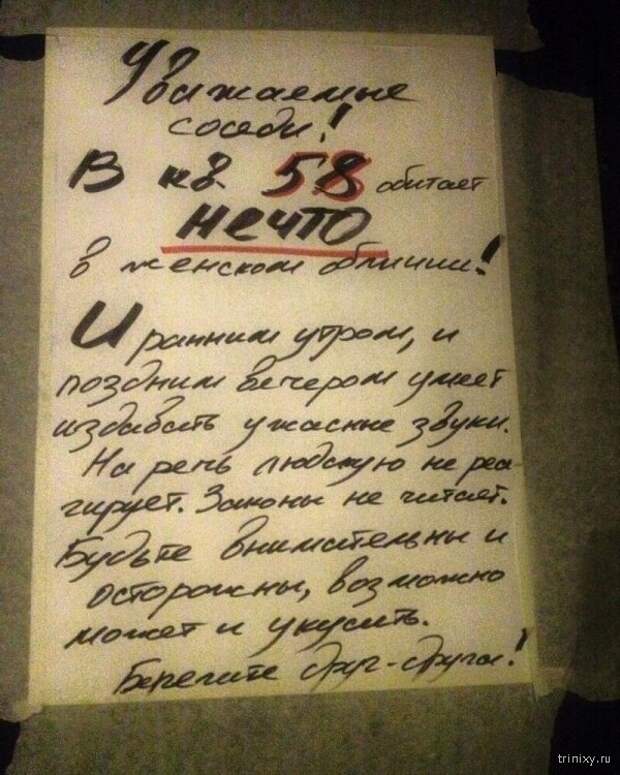 Уважаемые
соседи!
В кв. 58 обитает
нечто
в женском обличии!
И ранним утром, и
поздним вечером умеет
издавать ужасные звуки.
На речь людскую не реа-
гирует. Законы не читает.
Будьте внимательны и
осторожны, возможно
может и укусить.
Берегите друг-друга!
trinixy.ru